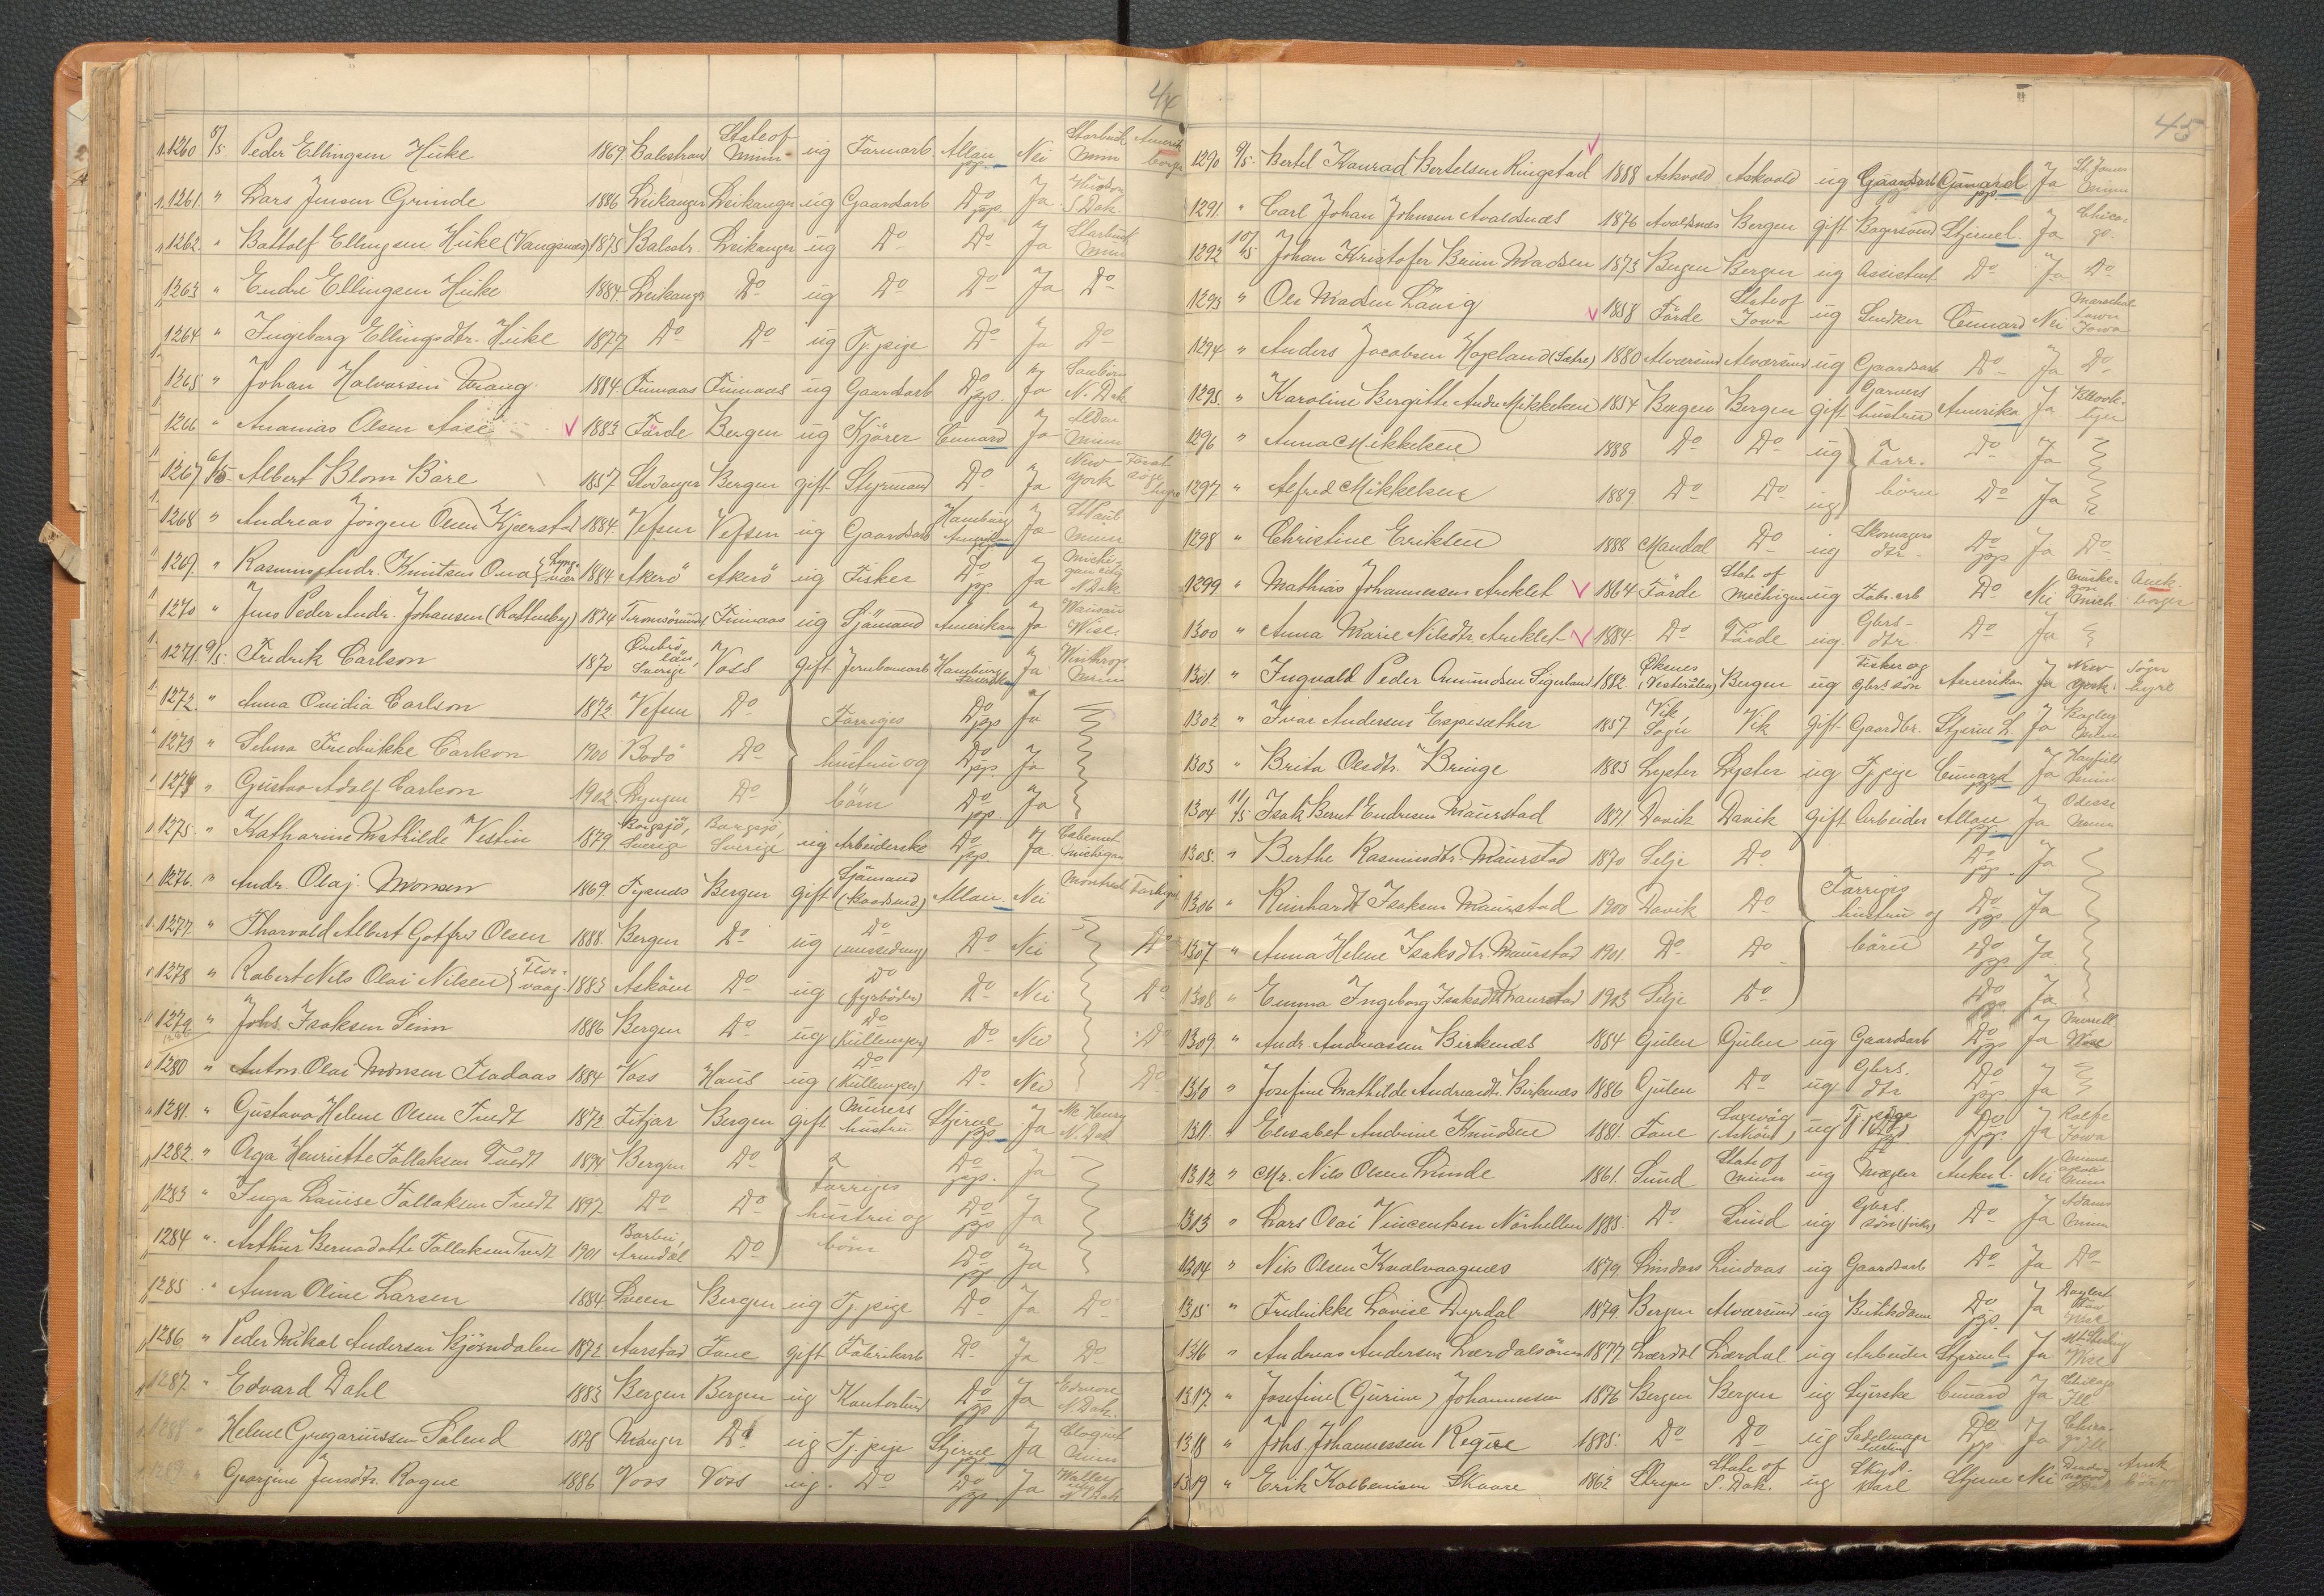 44
1260 8/5 Peder Ellingsen Huke 1869 Balestrand State of Minn ug Farmarb Allan pp. Nei Starbuck Minn Amerik. borger
1261 " Lars Jensen Grinde 1886 Leikanger Leikanger ug Gaardsarb Do pp. Ja Hudson S. Dak.
1262 " Battolf Ellingsen Huke (Vangsnæs) 1875 Balestr. Leikanger ug Do Do Ja Starbuck Minn
1263 " Endre Ellingsen Huke 1884 Leikanger Do ug Do Do Ja Do
1264 " Ingeborg Ellingsdtr. Huke 1877 Do Do ug Tj. pige Do Ja Do
1265 " Johan Halvorsen 1884 Finnaas Finnaas ug Gaardsarb Do pp. Ja Sanborn N. Dak
1266 " Ananias Olsen Aase 1883 Förde Bergen ug Kjörer Cunard Ja Alden Minn
1267 Albert Blom Bare 1857 Stavanger Bergen gift Styrmand Do Ja New York
1268 " Andreas Jörgen Olsen Kjærstad 1884 Vefsen Vefsen ug Gaardsarb Hamburg Amerika Ja St Paul Minn
1269 " Rasmus Andr. Knutsen Ona 1884 Akerö Akerö ug Fisker Do pp. Ja Michigan City N. Dak
1270 " Jens Peder Andr. Johansen 1874 Tromsösund Finnaas ug Sjömand Amerikan Ja Wausau Wisc.
1271 9/5 Fredrik Carlson 1870 Örebro län, Sverige Voss gift Jernbanearb Hamburg Amerika Ja Winthrop Minn
1272 " Anna Ovidia Carlson 1872 Vefsen Do Forriges Do pp. Ja
1273 " Selma Fredrikke Carlson 1900 Bodö Do hustru og Do pp. Ja
1274 " Gustav Adolf Carlson 1902 Lyngen Do börn Do pp. Ja
1275 " Katharina Mathilde Vestin 1879 Borgsjö, Sverige Borgsjö, Sverige ug Arbeiderske Do pp. Ja Michigan
1276 " Andr. Olaj. Monsen 1869 Tysnes Bergen gift Sjömand (baadsmd) Allan Nei Montreal
1277 " Thorvald Albert Gotfred Olsen 1888 Bergen Do ug Do Do Nei Do
1278 " Robert Nils Olai Nilsen Florvaag 1883 Asköen Do ug Do (fyrböder) Do Nei Do
1279 " Johs. Isaksen Seim 1886 Bergen Do ug Do (Kullemper) Do Nei Do
1280 " Anton Olai Monsen Fladaas 1884 Voss Haus ug Do (Kullemper) Do Nei Do
1281 " Gustava Helene Olsen Tvedt 1872 Fitjar Bergen gift Murers hustru Stjerne pp. Ja Mc Henry N. Dak
1282 " Olga Henriette Follaksen Tvedt 1894 Bergen Do Forriges Do pp. Ja
1283 " Inga Lauise Follaksen Tvedt 1897 Do Do hustru og Do pp. Ja
1284 " Arthur Bernadotte Follaksen Tvedt 1901 Barbu, Arendal Do börn Do pp. Ja
1285 " Anna Oline Larsen 1884 Sveen Bergen ug Tj. pige Do Ja Do
1286 " Peder Mikal Andersen Bjørndalen 1872 Aarstad Fane gift Fabrikarb Do Ja Do
1287 " Edvard Dahl 1883 Bergen Bergen ug Kontorbud Do pp. Ja Edmore N. Dak.
1288 " Helene Gregoriussen Solend 1878 Manger Do ug Tj. pige Stjerne pp. Ja Cloquet Minn
1289 " Georgine Jensdtr. Rogne 1886 Voss Voss ug Do Do pp. Ja N. Dak
45
1290 9/5 Bertel Konrad Bertelsen Ringstad 1888 Askvold Askvold ug Gaardsarb Cunard pp. Ja St. James Minn
1291 " Carl Johan Johnsen Avaldsnæs 1876 Avaldsnæs Bergen gift Bagersvend Stjernel. Ja Chicago.
1292 10/5 Johan Kristofer Brun Madsen 1873 Bergen Bergen ug Assistent Do Ja Do
1293 " Ole Madsen Lavig 1858 Förde State of Iowa ug Snedker Cunard Nei Marschal town Iowa
1294 " Anders Jacobsen Hopland (Sætre) 1880 Alværsund Alværsund ug Gaardsarb Do Ja Do
1295 " Karoline Bergitte Andrea Mikkelsen 1854 Bergen Bergen gift Garvers hustru Amerika Ja Brooklyn
1296 " Anna Mikkelsen 1888 Do Do ug Forr. Do Ja
1297 " Alfred Mikkelsen 1889 Do Do ug börn Do Ja
1298 " Christine Eriksen 1888 Mandal Do ug Skomagers dtr Do pp. Ja Do
1299 " Mathias Johannessen Areklet 1864 Förde State of Michigan ug Fabr. arb Do Nei Muskegon Mich. Amk. borger
1300 " Anna Marie Nilsdtr. Areklet 1884 Do Förde ug Gbrs-dtr Do Ja
1301 " Ingvald Peder Amundsen Sigerland 1882 Öksnes (Vesterålen) Bergen ug Fisker og Gbrs. sön Amerika Ja New York. Söger hyre
1302 " Ivar Andersen Espesæther 1857 Vik, Sogn Vik gift Gaardbr. Stjerne L. Ja Bagley Minn
1303 " Brita Olesdtr. Bringe 1883 Lyster Lyster ug Tj. pige Cunard Ja Hayfield Minn
1304 11/5 Isak Bernt Endresen Maurstad 1871 Davik Davik gift Arbeider Allan pp. Ja Odessa Minn
1305 " Berthe Rasmusdtr. Maurstad 1870 Selje Do Do pp. Ja
1306 " Reinhardt Isaksen Maurstad 1900 Davik Do Forriges hustru og Do pp. Ja
1307 " Anna Helene Isaksdtr. Maurstad 1901 Do Do börn Do pp. Ja
1308 " Emma Ingeborg Isaksdtr. Maurstad 1903 Selje Do Do pp. Ja
1309 " Andr. Andreassen Birkenæs 1884 Gulen Gulen ug Gaardsarb Do pp. Ja Merrill Wisc
1310 " Josefine Mathilde Andreasdtr. Birkenæs 1886 Gulen Do ug Gbrs. dtr Do pp. Ja
1311 " Elisabet Andrine Knudsen 1881 Fane Laxevåg (Asköen) ug Tj. pige Do pp. Ja Iowa
1312 " Mr. Nils Olsen Lunde 1861 Sund State of Minn ug Mægler Ankerl. Nei Minneapolis Minn
1313 " Lars Olai Vincentsen Nörhellen 1885 Do Sund ug Gbrs. sön (fisker) Do Ja Adams Minn
1304 " Nils Olsen Kvalvaagnæs 1879 Lindaas Lindaas ug Gaardsarb Do Ja Do
1315 " Fredrikke Lovise Dyrdal 1879 Bergen Alværsund ug Butikdame Do pp. Ja Wisc
1316 " Andreas Andersen Lærdalsören 1877 Lærdal Lærdal ug Arbeider Stjernel. Ja Mt Sterling Wisc
1317 " Josefine (Gurine) Johannessen 1876 Bergen Bergen ug Syerske Cunard Ja Chicago Ill
1318 " Johs. Johannessen Regve 1885 Do Do ug Sadelmager Do pp. Ja Chicago Ill
1319 " Erik Kolbensen Skaare 1862 Stryn State of S. Dak. ug Skyds-karl Stjerne Nei Amk.